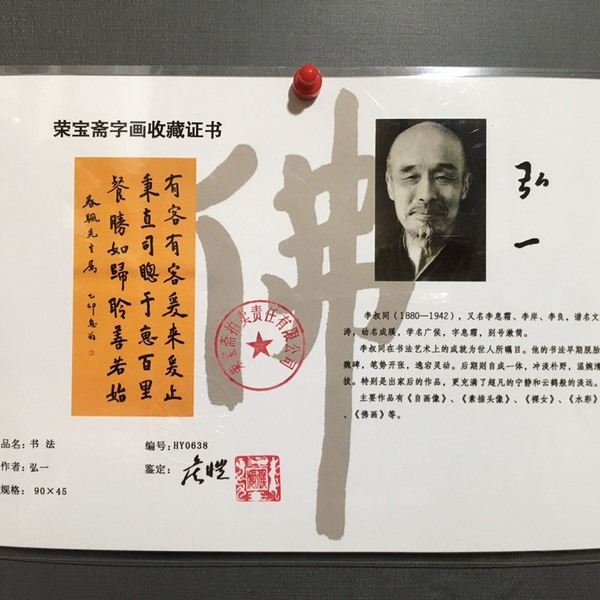 荣宝斋字画收藏证书
有客有客爰来爰止
秉直司聰于恵百里
餐勝如歸聆善若始
春颿先生属 乙卯息翁
佛
荣宝斋拍卖责任有限公司
弘一
李叔同(1880—1942),又名李息霜、李岸、李良,谱名文
涛,幼名成蹊,学名广侯,字息霜,别号漱筒。
李叔同在书法艺术上的成就为世人所瞩目。他的书法早期脱胎
魏碑,笔势开张,逸宕灵动。后期则自成一体,冲淡朴野,温婉清
拔。特别是出家后的作品,更充满了超凡的宁静和云鹤般的淡远。
主要作品有《自画像》、《素描头像》、《裸女》、《水彩》
、《佛画》等。
品名:书 法
编号:HY0638
作者:弘一
鉴定:
规格:90×45